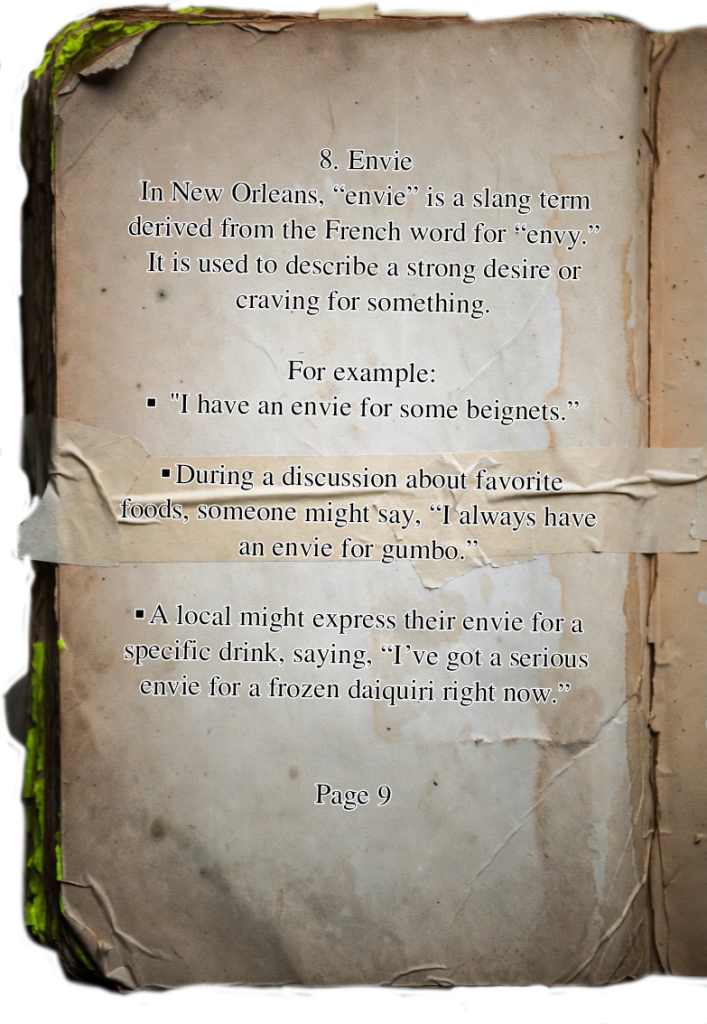 8. Envie
In New Orleans, “envie” is a slang term
derived from the French word for “envy.”
It is used to describe a strong desire or
craving for something.
For example:
▪ "I have an envie for some beignets.”
▪During a discussion about favorite
foods, someone might say, “I always have
an envie for gumbo.”
▪A local might express their envie for a
specific drink, saying, “I’ve got a serious
envie for a frozen daiquiri right now.”
Page 9